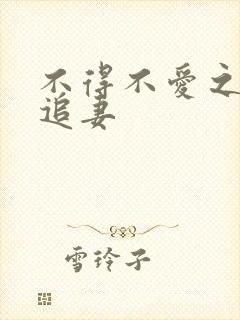 不得不愛之
追妻
雪玲子